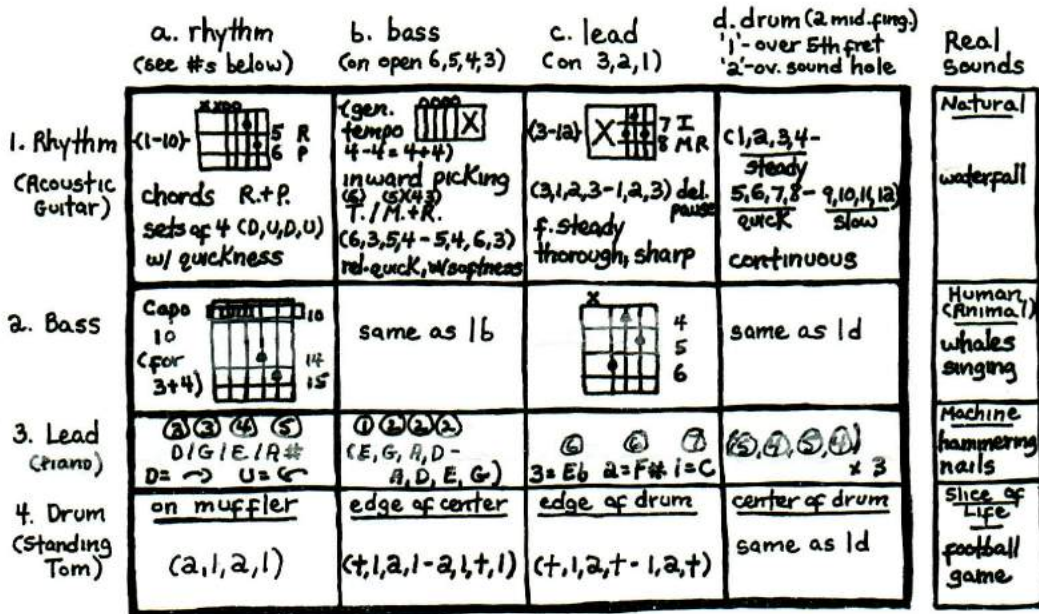 a. rhythm
(see #s below)
b. bass
(on open 6,5,4,3)
c. lead
(on 3,2,1)
d. drum (2 mid. fing.)
'1'- over 5th fret
'2'-ov. sound hole
Real
Sounds
1. Rhythm
(Acoustic
Guitar)
(1-10)-
xxoo
5 R
6 P
chords R.+P.
sets of 4 (D,U,D,U)
w/ quickness
(gen.
tempo
4-4 = 4+4)
oooo
X
inward picking
(6) (5)(43)
T. / M.+R.
(6,3,5,4 - 5,4,6,3)
rel. quick, w/softness
(3-12)-
X
7 I
8 M R
(3,1,2,3 - 1,2,3) del.
pause
f. steady
thorough, sharp
(1,2,3,4-
steady
5,6,7,8- 9,10,11,12)
quick slow
continuous
Natural
waterfall
2. Bass
Capo
10
(for
3+4)
10
14
15
same as 1b
x
4
5
6
same as 1d
Human
(Animal)
whales
singing
3. Lead
(Piano)
2 3 4 5
D/G/E/A#
D= → U=
1 2 2 2
(E, G, A, D-
A, D, E, G)
6 6 7
3=Eb 2=F# 1=C
(5,4,5,4)
x 3
Machine
hammering
nails
4. Drum
(Standing
Tom)
on muffler
(2,1,2,1)
edge of center
(t,1,2,1 - 2,1,t,1)
edge of drum
(t,1,2,t - 1,2,t)
center of drum
same as 1d
Slice of
Life
football
game